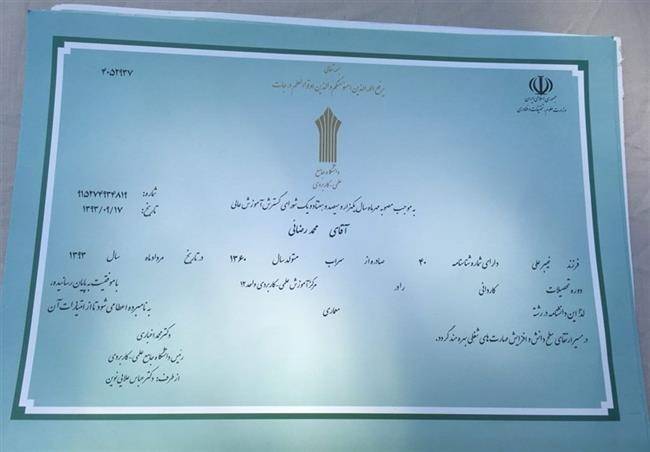 بسمه تعالی
یرفع الله الذین آمنوا منکم والذین اوتوا العلم درجات
۴۰۵۲۹۳۷
جمهوری اسلامی ایران
وزارت علوم، تحقیقات و فناوری
دانشگاه جامع
علمی-کاربردی
شماره: ۹۱۵۲۷۴۹۳۴۸۱۹
تاریخ: ۱۳۹۳/۰۹/۱۷
به موجب مصوبه مهرماه سال یکهزار و سیصد و هفتاد و یک شورای گسترش آموزش عالی
آقای محمد رضائی
فرزند قنبرعلی دارای شماره شناسنامه ۴۰ صادره از سراب متولد سال ۱۳۶۰ در تاریخ مرداد ماه سال ۱۳۹۳
دوره تحصیلات کاردانی را در مرکز آموزش علمی-کاربردی واحد ۱۲ با موفقیت به پایان رسانیده و
لذا این دانشنامه در رشته معماری به نامبرده اعطا می شود تا از امتیازات آن
در مسیر ارتقای سطح دانش و افزایش مهارت های شغلی بهره مند گردد.
دکتر محمد اخباری
رئیس دانشگاه جامع علمی-کاربردی
از طرف: دکتر عباس علایی نوین